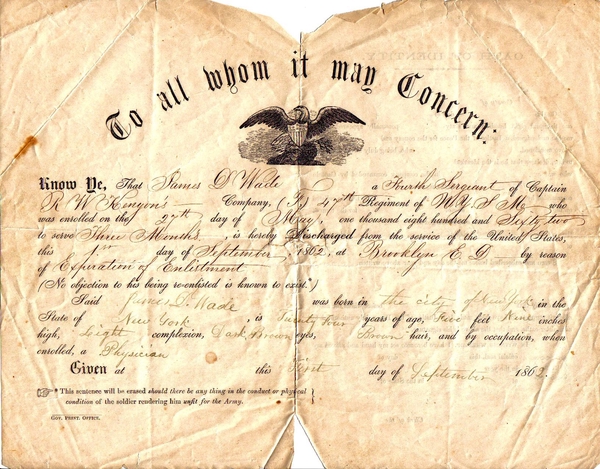 To all whom it may Concern:
Know Ye, That James D. Wade a Fourth Sergeant of Captain
R W Kenyons Company, (F) 47th Regiment of N.Y.S.M. who
was enrolled on the 27th day of May, one thousand eight hundred and Sixty two
to serve Three Months, is hereby Discharged from the service of the United States,
this 1st day of September, 1862, at Brooklyn E D by reason
of Expiration of Enlistment
(No objection to his being re-enlisted is known to exist.*)
Said James D. Wade was born in the city of New York in the
State of New York, is Twenty Four years of age, Five feet Nine inches
high, Light complexion, Dark Brown eyes, Brown hair, and by occupation, when
enrolled, a Physician
Given at this First day of September 1862.
* This sentence will be erased should there be any thing in the conduct or physical
condition of the soldier rendering him unfit for the Army.
Gov. Print. Office.